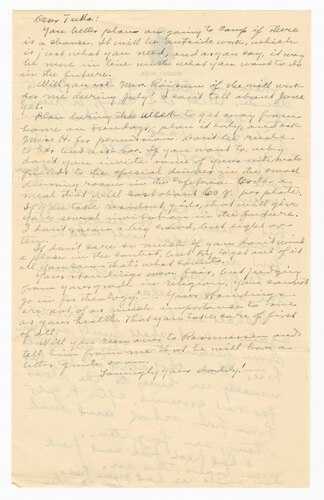 Dear Tubba:
You better plan on going to Camp if there
is a chance. It will be outside work, which
is just what you need, and as you say, it may
be more in line with what you want to do
in the future.
Will you ask Mrs. if she will work
for me during July? I can't tell about June
yet!
Plan during the week to get away from
home on Sunday, plan it right, and ask
Miss H. for permission, but be ready to
take her also. If you want to, why
don't you invite some of your intimate
friends to the special dinner in the small
dinning room in the Order a
meal that will cost about 50¢ per plate.
If you take resident girls, that will give
you several invitations in the future.
I don't mean a big crowd, but eight or
ten.
I don't care so much if you don't win
a place in the contest, but try to get out of it
all you can. that's what counts!
Your standings were fair, but judging
from your grade in religion, you cannot
go in for theology! Your standings
are not of as much importance to me
as your health. That you take care of first
of all.
Will you remember to Rasmussen and
tell him from me that he will have a
letter quite soon.
Lovingly yours daddy!